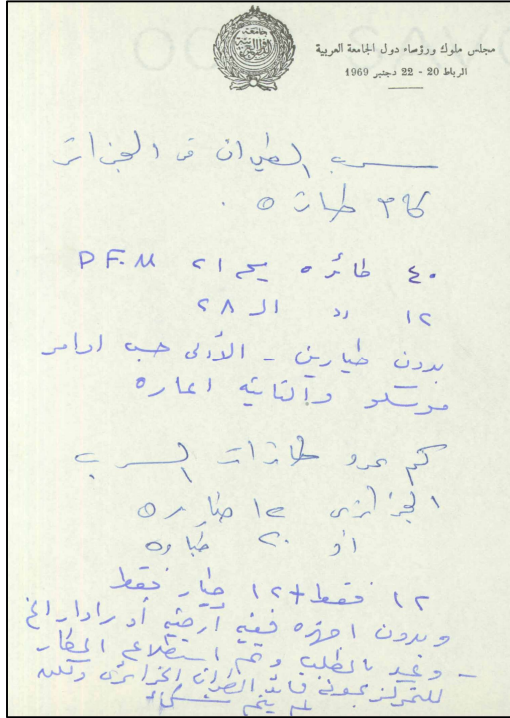 مجلس ملوك ورؤساء دول الجامعة العربية
الرباط 20 - 22 دجنبر 1969
سرب الطيران في الجزائر
كام طائره .
٤٠ طائره ميج ٢١ P.F.M
١٢ " ال ٢٨
بدون طيارين - الأولى حسب اوامر
موسكو والثانيه اعاره
كم عدد طائرات السرب
الجزائرى ١٢ طياره
أو ٢٠ طياره
١٢ فقط + ١٢ طيار فقط
وبدون اجهزه فنيه أرضيه أو رادار الخ
- وعد بالطلب وتم استطلاع المطار
للتمركز بمعرفة قائد الطيران الجزائرى ولكن
لم يتم شىء